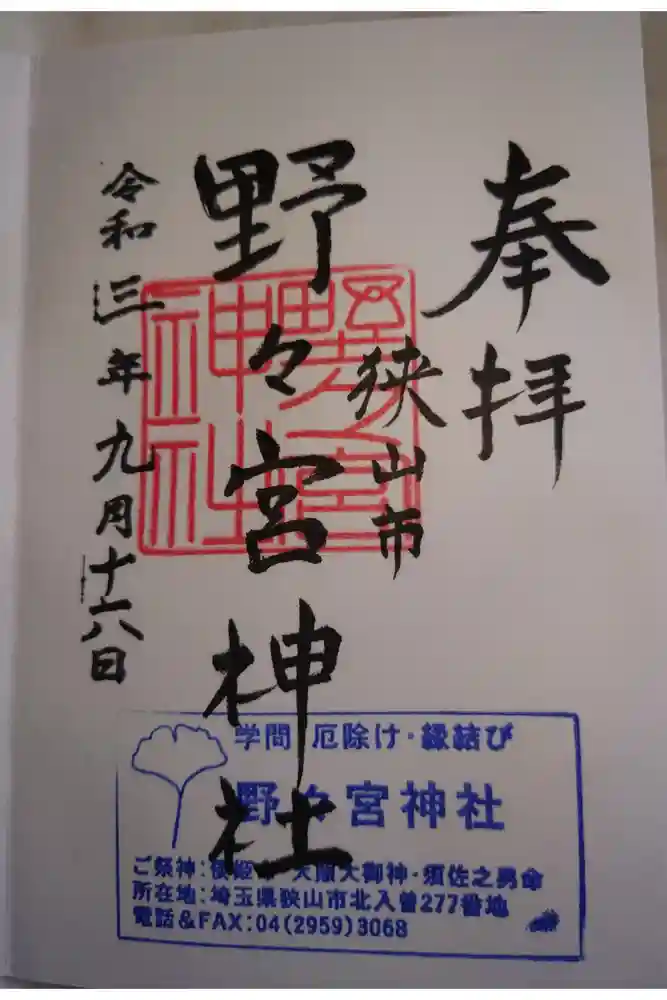 奉拝
狭山市
野々宮神社
令和三年九月十六日
野々宮神社
学問 厄除け・縁結び
野々宮神社
ご祭神:倭姫命 天照大御神・須佐之男命
所在地:埼玉県狭山市北入曽277番地
電話&FAX:04(2959)3068